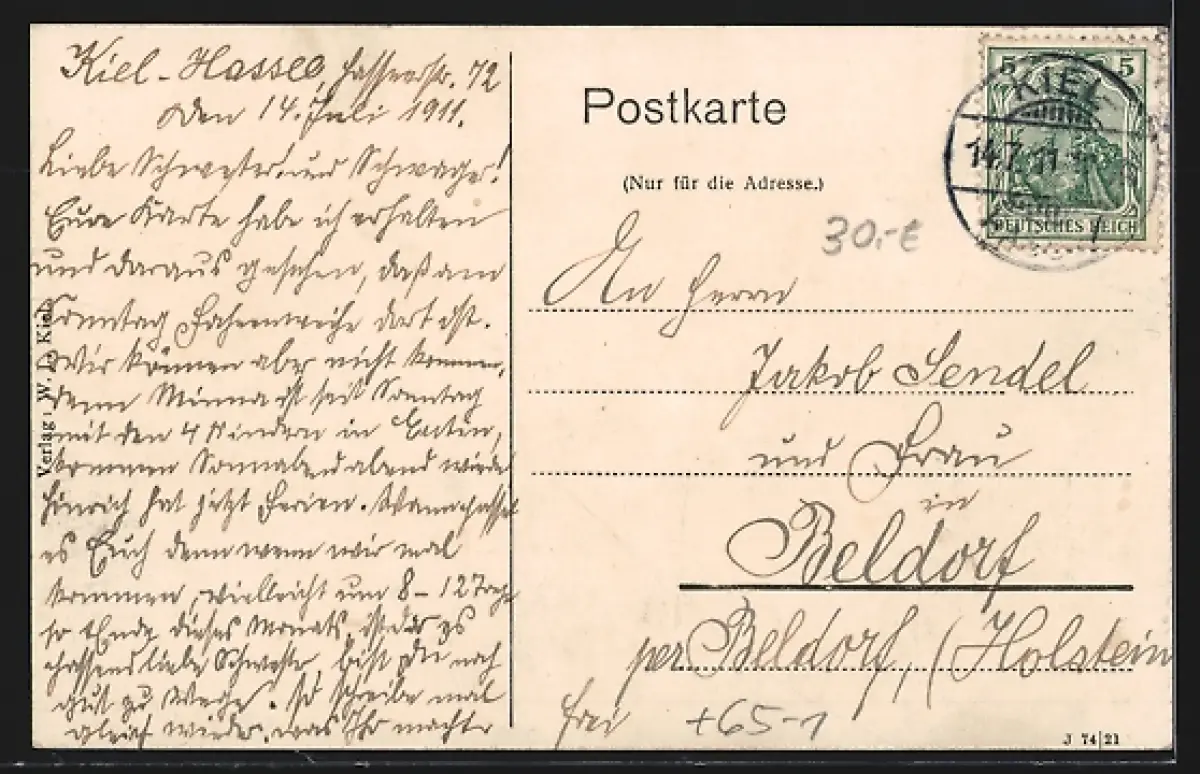 Kiel-Hassee, Hasseerstr. 72
Den 14. Juli 1911.
Liebe Schwester und Schwager!
Eure Karte habe ich erhalten
und daraus gesehen, daß am
Sonntag Fahnenweihe dort ist.
Wir können aber nicht kommen,
denn Minna ist seit Sonntag
mit den 4 Kindern in Eutin,
kommen Sonnabend abend wieder
Hinrich hat jetzt Ferien. Wann passet
es Euch denn wenn wir mal
kommen, vielleicht um 8-12 Tage
so Ende dieses Monats, ist das es
passend liebe Schwester, bist Du noch
gut zu Wege. So schreibe mal
gleich wieder, was Ihr macht
Verlag: W. Kiel
Postkarte
(Nur für die Adresse.)
5 5
KIEL
14.7.11
1
DEUTSCHES REICH
30.-€
An Herrn
Jakob Sendel
und Frau
in
Beldorf
per Beldorf, (Holstein
frei +65-1
J 74|21